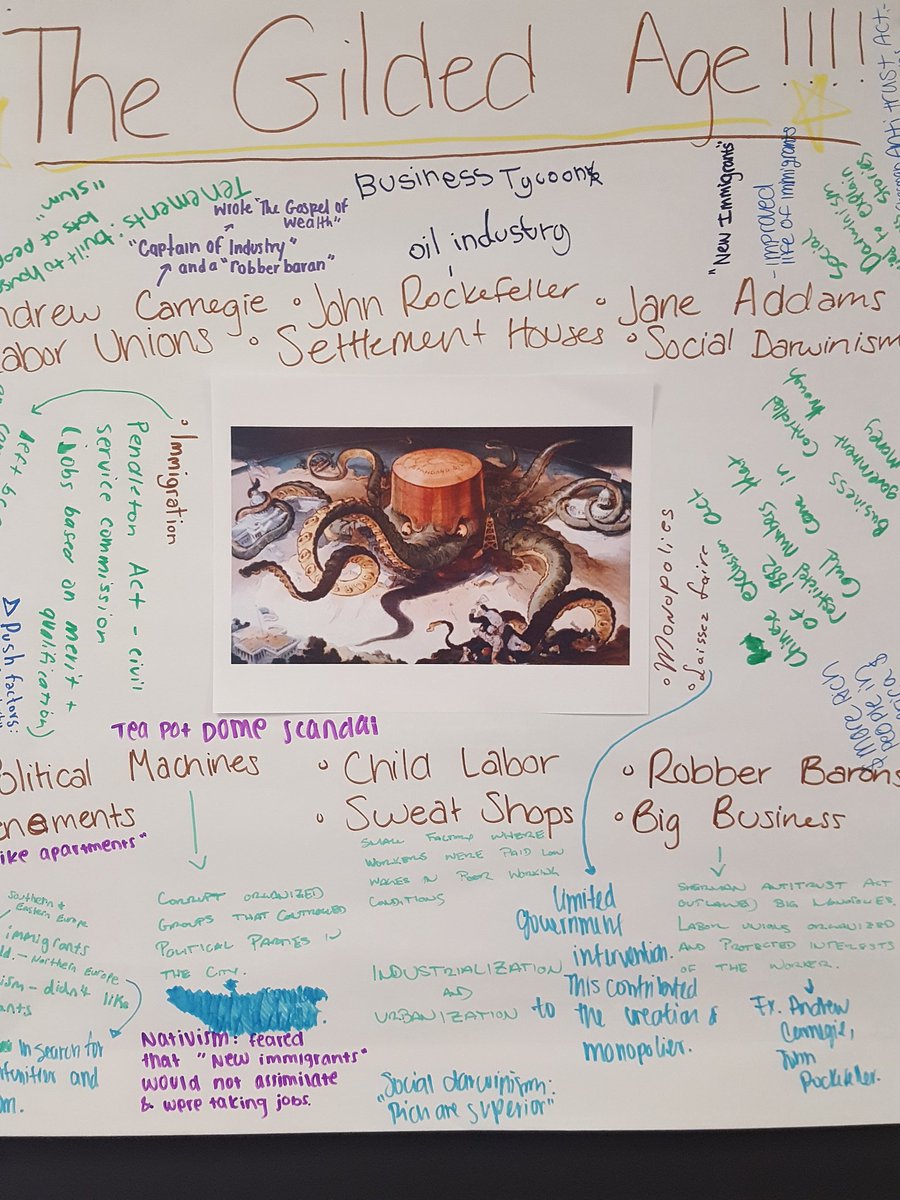 The Gilded Age!!!!
Business Tycoon
oil industry
Tenements: built to house
lots of peop
"slum"
wrote "The Gospel of
Wealth"
"Captain of Industry"
and a "robber baran"
"New Immigrants"
- improved
life of immigrants
Social
Darwinism
to explain
stories
Anti trust Act-
ndrew Carnegie • John Rockefeller • Jane Addams
Labor Unions • Settlement Houses • Social Darwinism
• Immigration
Pendleton Act - civil
service commission
(Jobs based on merit +
qualification)
Push factors:
• Monopolies
• Laissez faire
Chinese Exclusion Act
of 1882 that
restricted numbers
could come in
Business controlled
government through
money
more rich
people in
Tea Pot Dome Scandal
olitical Machines
enements
ike apartments"
• Child Labor
• Sweat Shops
• Robber Barons
• Big Business
Small factory where
workers were paid low
wages in poor working
conditions
Corrupt organized
groups that controlled
political parties in
the city.
Sherman Antitrust Act
outlawed big monopolies.
Labor unions organized
and protected interests
of the worker.
Ex. Andrew
Carnegie,
John
Rockefeller.
Limited
government
intervention.
This contributed
to the creation of
monopolies.
Industrialization
and
Urbanization
southern &
Eastern Europe
immigrants
ld. - Northern Europe
ism - didn't like
ants
in search for
rtunities and
m.
Nativism: feared
that "New immigrants"
would not assimilate
& were taking jobs.
"Social darwinism:
Rich are superior"